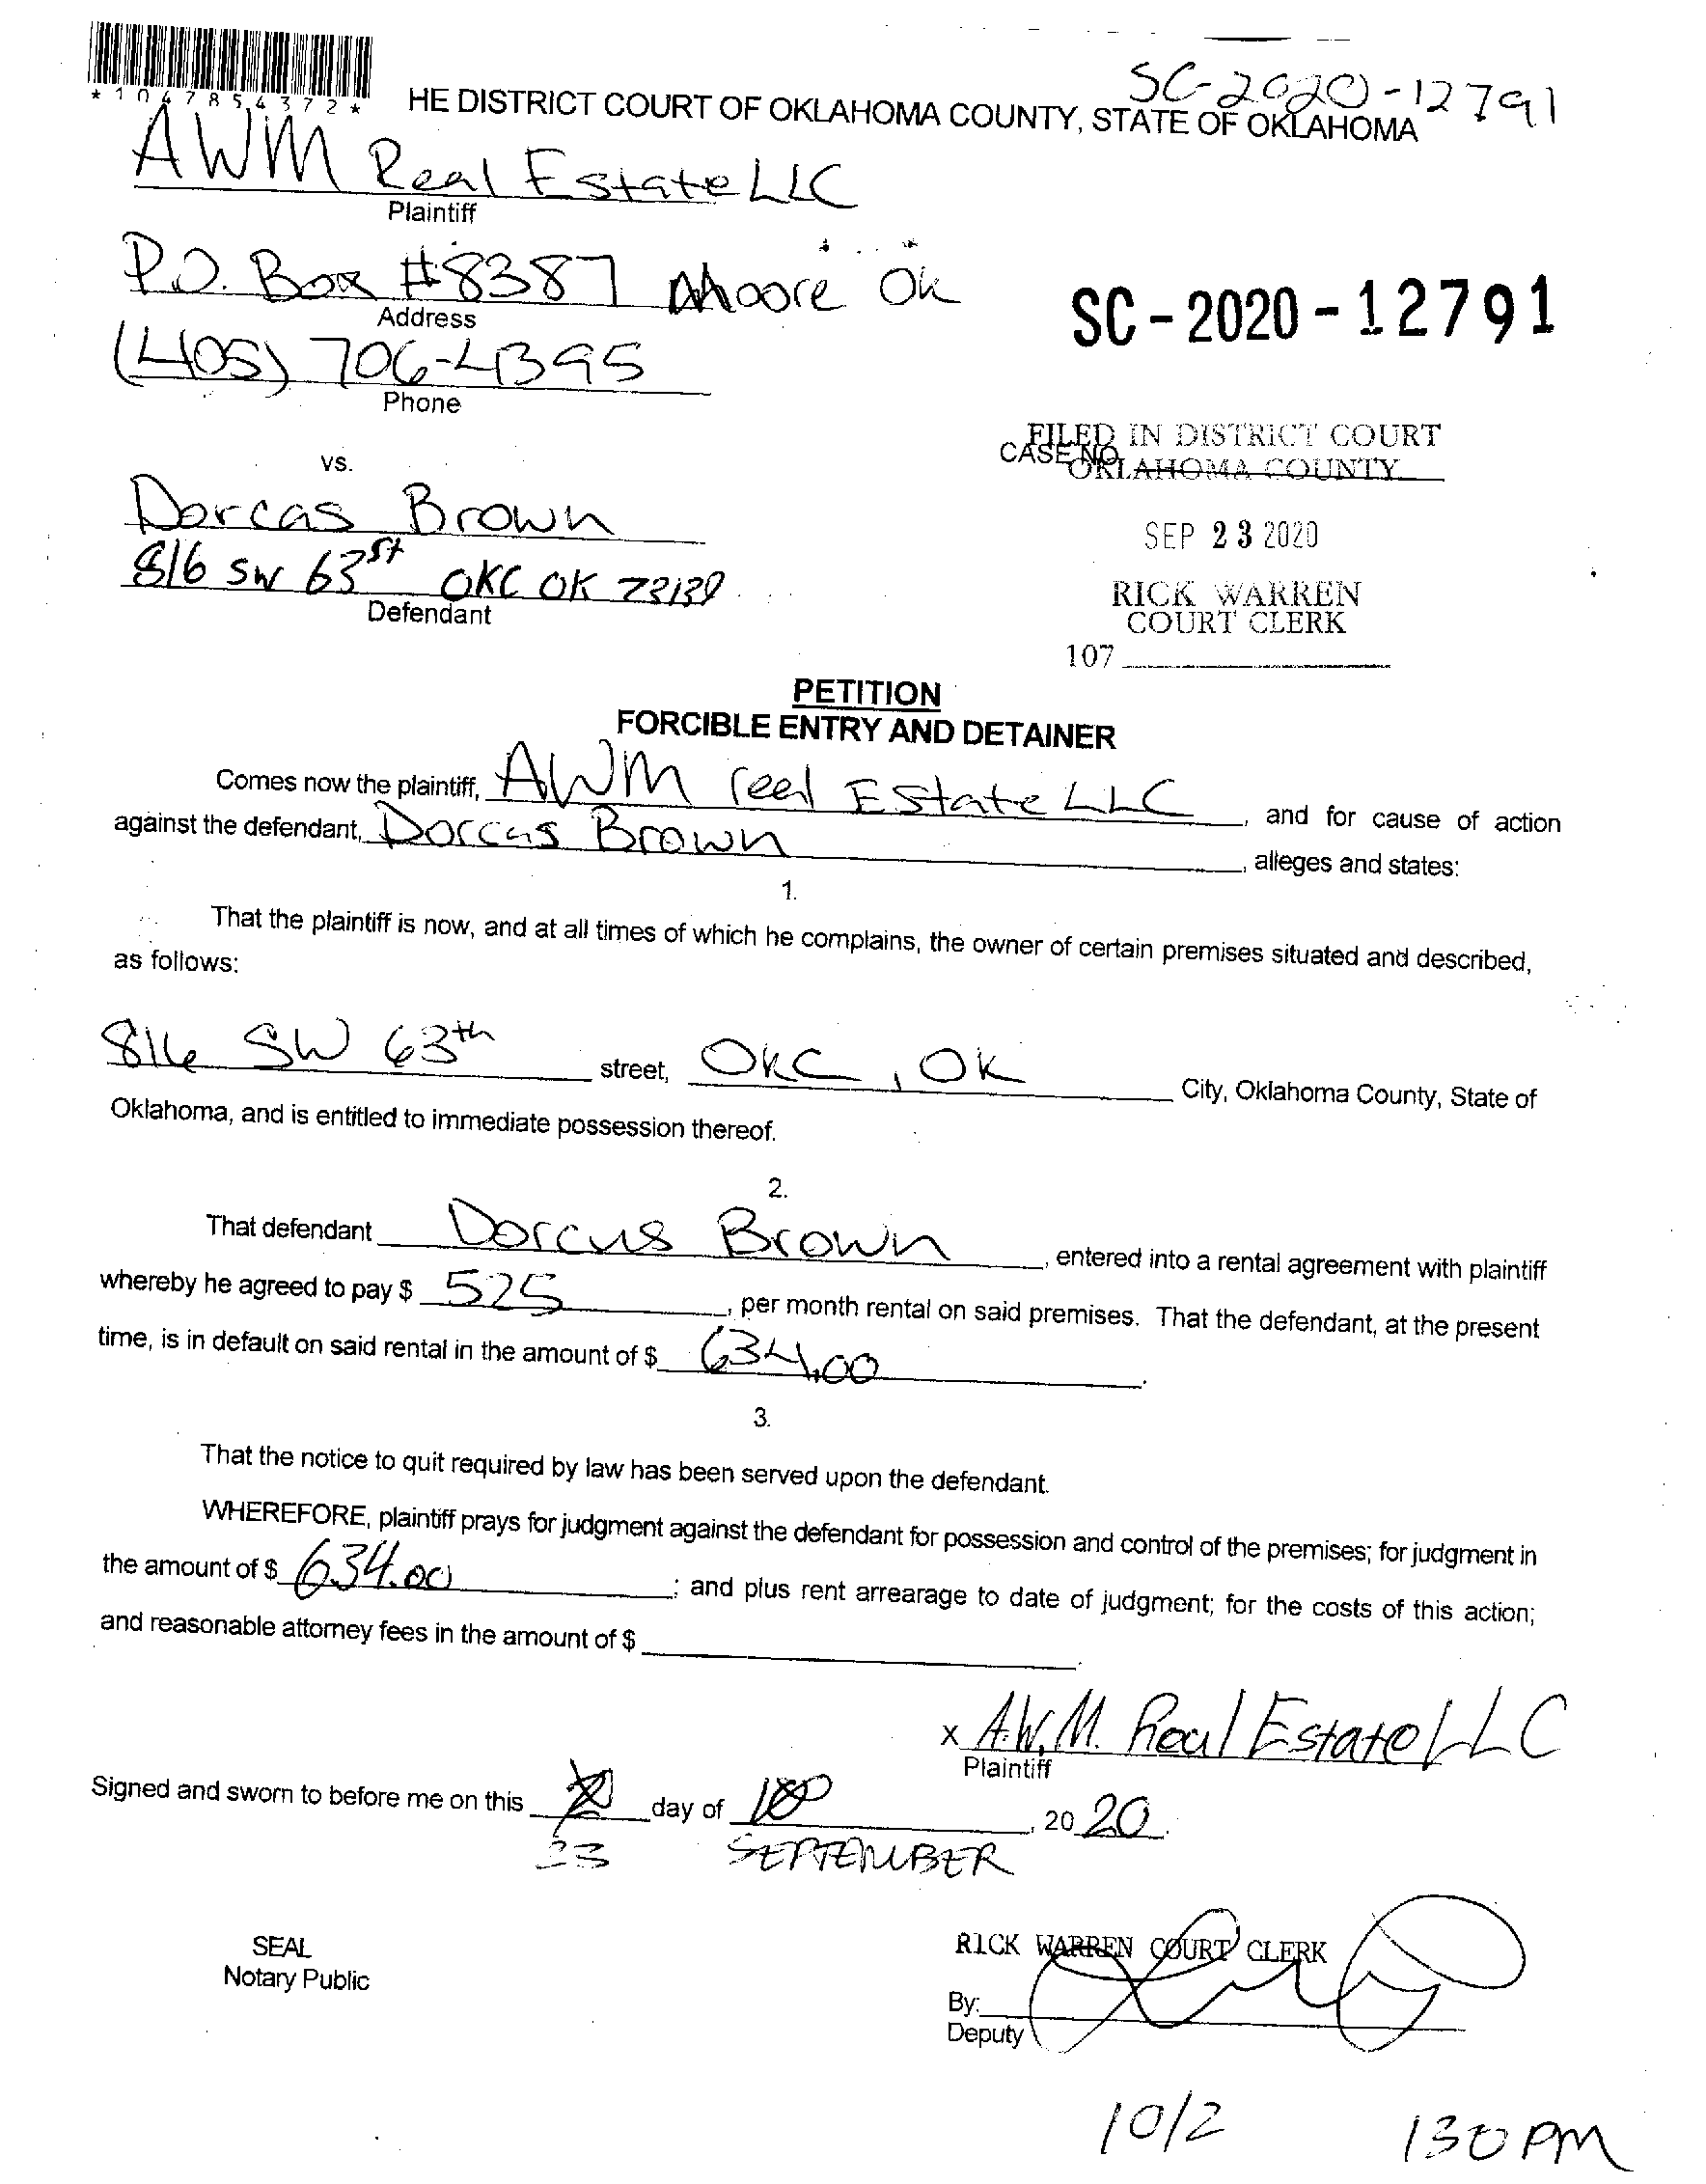 *1047854372*
SC-2020-12791
HE DISTRICT COURT OF OKLAHOMA COUNTY, STATE OF OKLAHOMA
AWM Real Estate LLC
Plaintiff
P.O. Box #8387 Moore Ok
Address
SC-2020-12791
(405) 706-4395
Phone
FILED IN DISTRICT COURT
CASE NO.
OKLAHOMA COUNTY
vs.
Dorcas Brown
SEP 23 2020
816 SW 63st OKC OK 73139
Defendant
RICK WARREN
COURT CLERK
107
PETITION
FORCIBLE ENTRY AND DETAINER
Comes now the plaintiff, AWM reel Estate LLC, and for cause of action
against the defendant, Dorcas Brown, alleges and states:
1.
That the plaintiff is now, and at all times of which he complains, the owner of certain premises situated and described,
as follows:
816 SW 63th street, OKC, OK City, Oklahoma County, State of
Oklahoma, and is entitled to immediate possession thereof.
2.
That defendant Dorcus Brown, entered into a rental agreement with plaintiff
whereby he agreed to pay $ 525, per month rental on said premises. That the defendant, at the present
time, is in default on said rental in the amount of $ 634.00.
3.
That the notice to quit required by law has been served upon the defendant.
WHEREFORE, plaintiff prays for judgment against the defendant for possession and control of the premises; for judgment in
the amount of $ 634.00; and plus rent arrearage to date of judgment; for the costs of this action;
and reasonable attorney fees in the amount of $
x A.W.M. Real Estate LLC
Plaintiff
Signed and sworn to before me on this day of, 20 20.
23 SEPTEMBER
SEAL
Notary Public
RICK WARREN COURT CLERK
By:
Deputy
10/2 130 PM